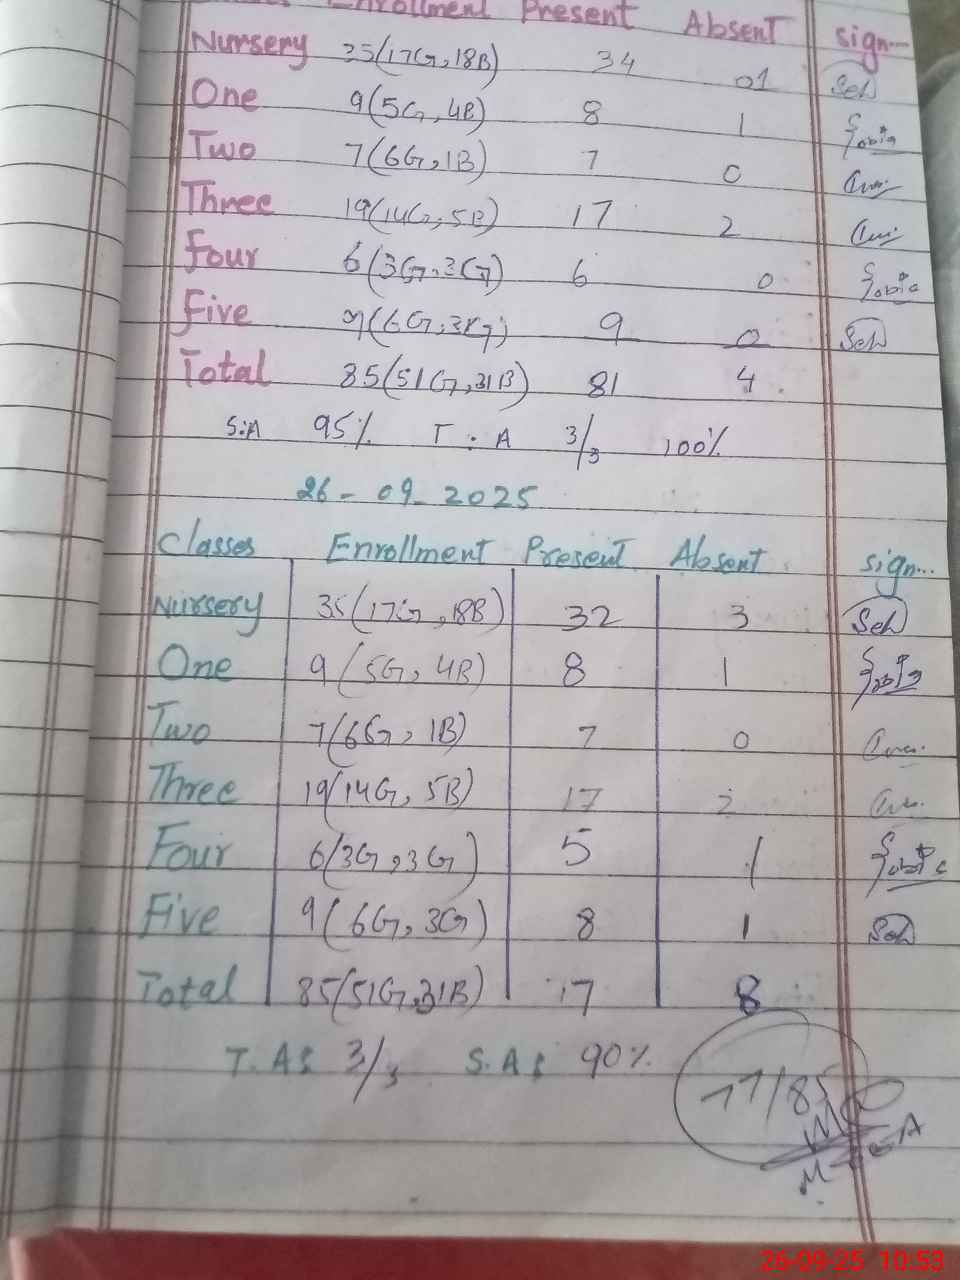 Enrollment Present Absent sign...
Nursery 35(17G, 18B) 34 01 Seh
One 9(5G, 4B) 8 1
Two 7(6G, 1B) 7 0
Three 19(14G, 5B) 17 2
Four 6(3G, 3G) 6 0
Five 9(6G, 3G) 9 0 Seh
Total 85(51G, 31B) 81 4
S.A 95% T.A 3/3 100%
26-09-2025
Classes Enrollment Present Absent sign...
Nursery 35(17G, 18B) 32 3 Seh
One 9(5G, 4B) 8 1
Two 7(6G, 1B) 7 0
Three 19(14G, 5B) 17 2
Four 6(3G, 3G) 5 1
Five 9(6G, 3G) 8 1 Seh
Total 85(51G, 31B) 17 8
T.A: 3/3 S.A: 90%
77/85
MEA
26-09-25 10:53